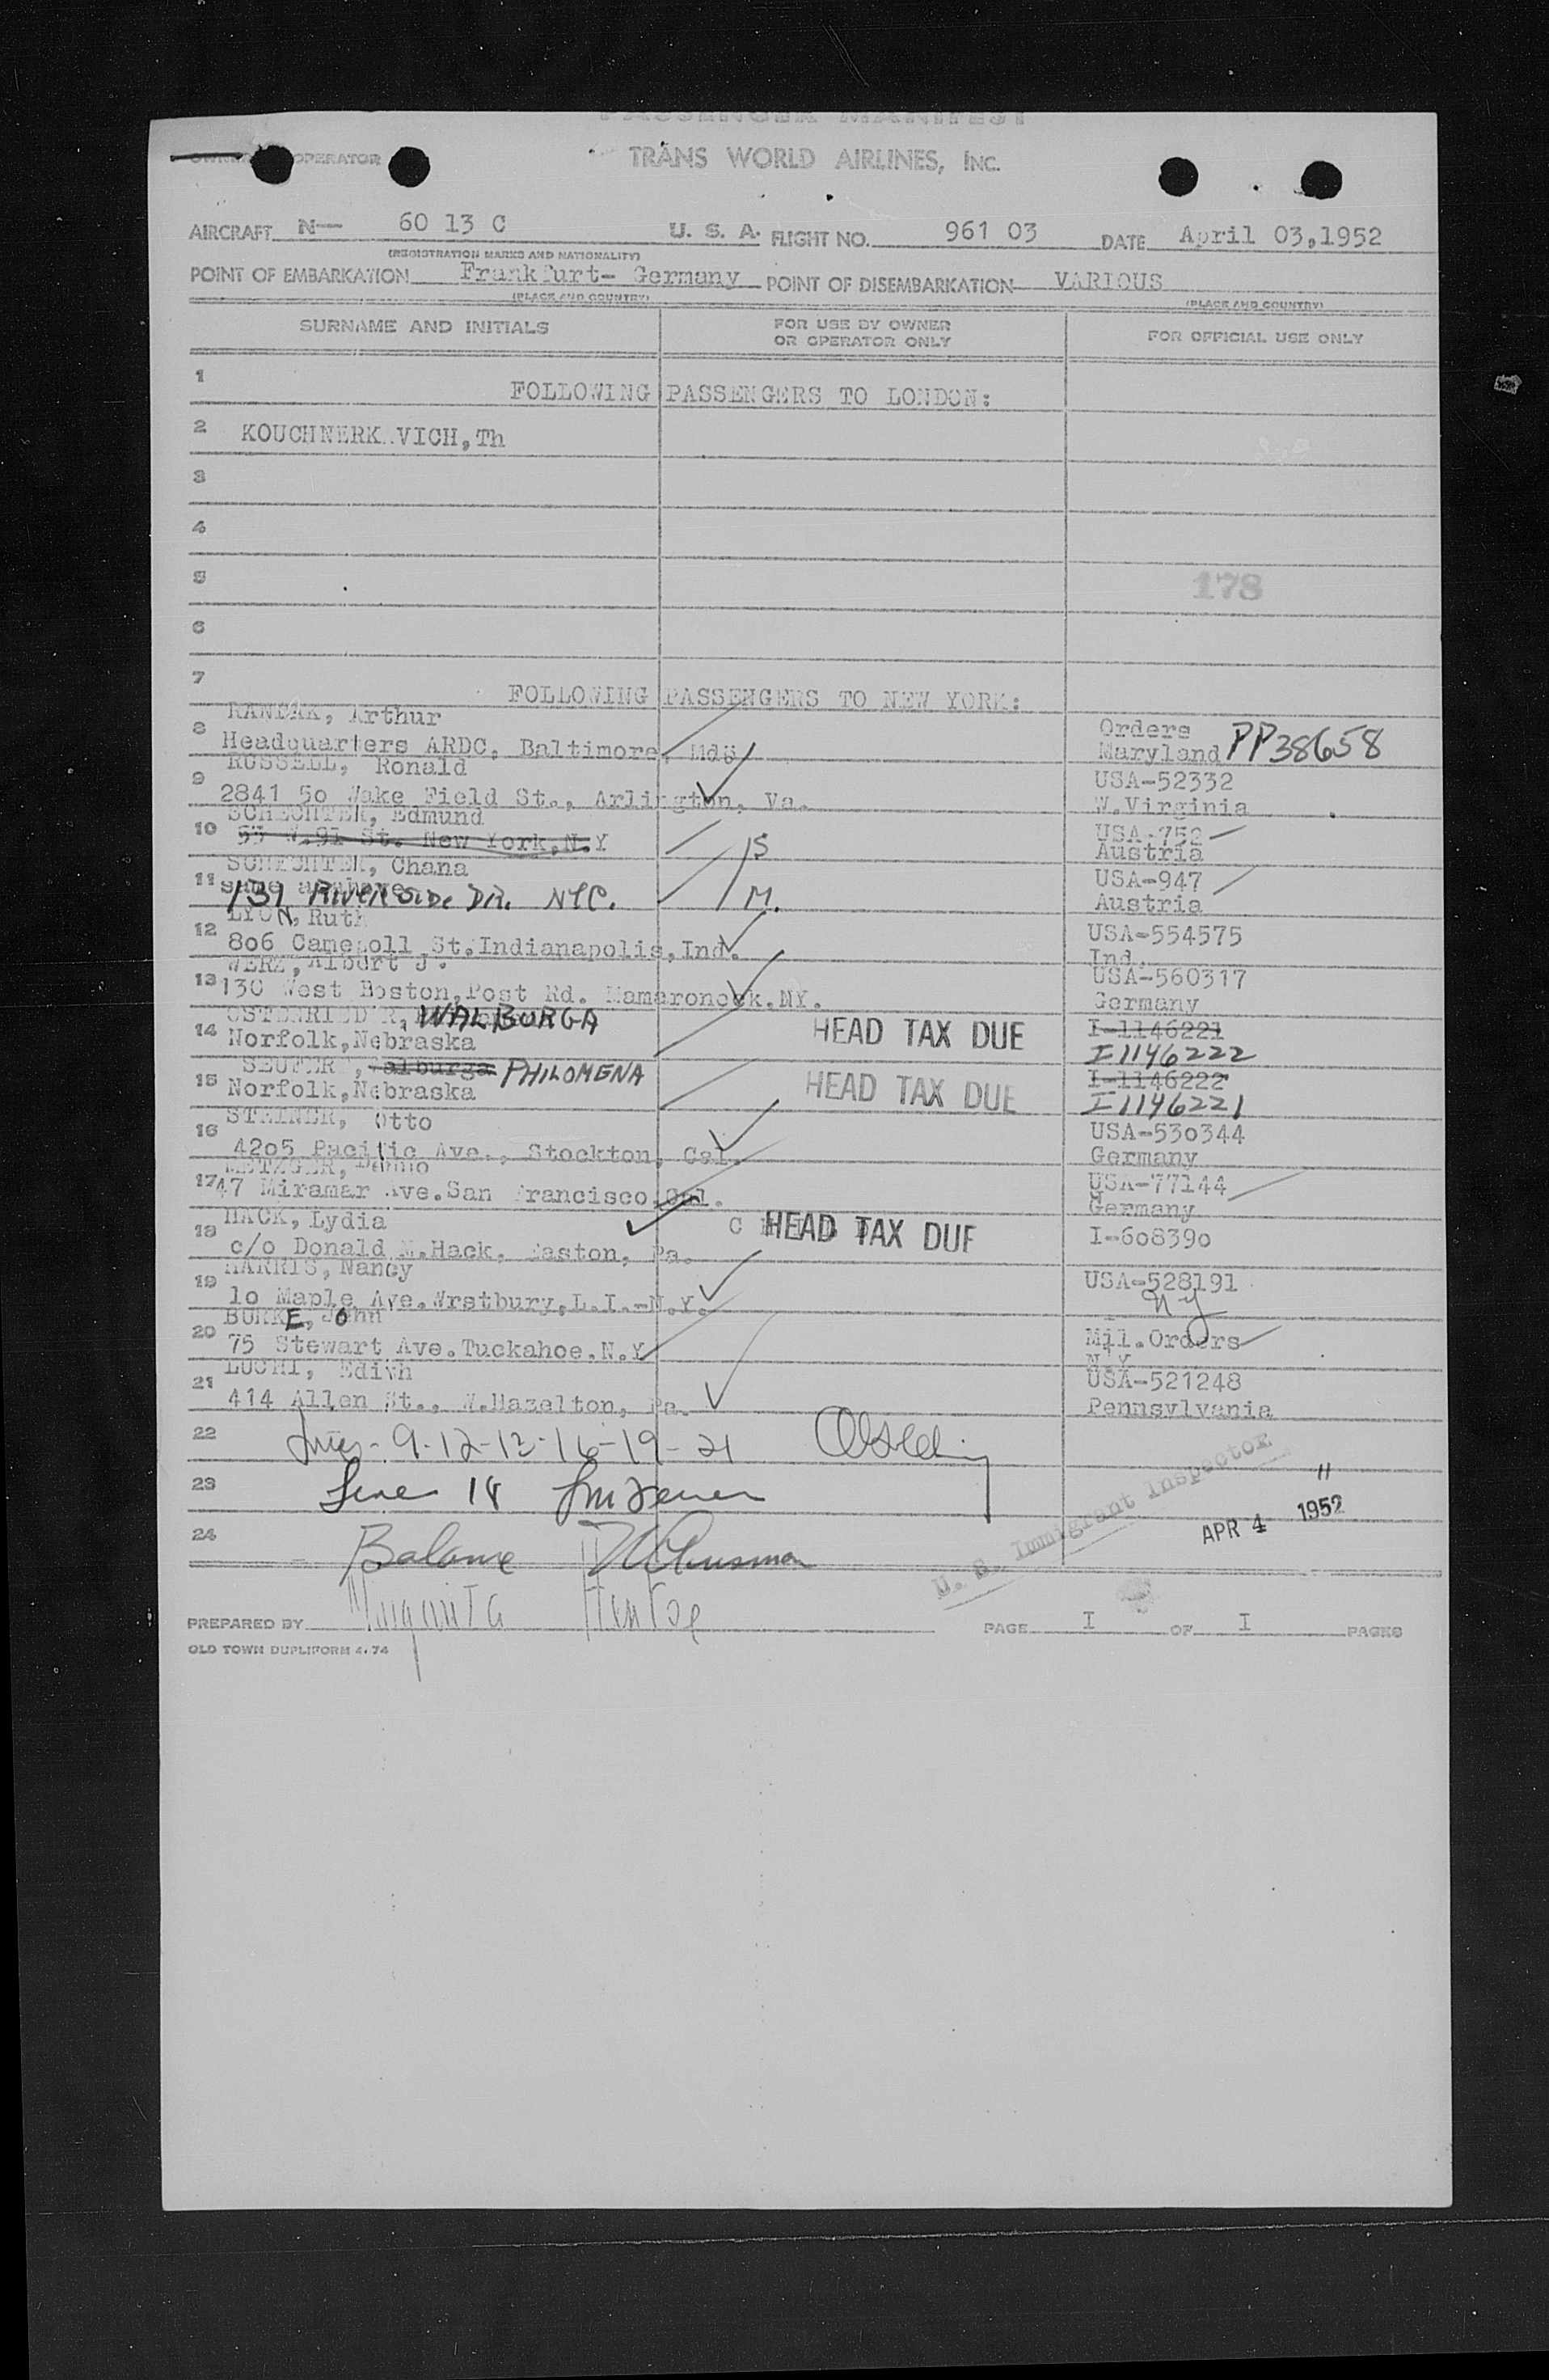 PASSENGER MANIFEST
OPERATOR
TRANS WORLD AIRLINES, INC.
AIRCRAFT N— 60 13 C U. S. A. FLIGHT NO. 961 03 DATE April 03,1952
(REGISTRATION MARKS AND NATIONALITY)
POINT OF EMBARKATION Frankfurt- Germany POINT OF DISEMBARKATION VARIOUS
(PLACE AND COUNTRY) (PLACE AND COUNTRY)
SURNAME AND INITIALS FOR USE BY OWNER OR OPERATOR ONLY FOR OFFICIAL USE ONLY
1 FOLLOWING PASSENGERS TO LONDON:
2 KOUCHNERK VICH, Th
3
4
5 178
6
7 FOLLOWING PASSENGERS TO NEW YORK:
Arthur Orders
8 Headquarters ARDC, Baltimore, Maryland PP38658
RUSSELL, Ronald USA-52332
9 2841 So Wake Field St., Arlington, Va. W.Virginia
SCHECHTER, Edmund USA-752
10 W.91 St. New York,N.Y S Austria
SCHECHTER, Chana USA-947
11 same as above 139 RIVERSIDE DR. NYC. M. Austria
LYON, Ruth USA-554575
12 806 St.Indianapolis,Ind. Ind.
Albert J. USA-560317
13 130 West Boston,Post Rd. Mamaroneck.NY. Germany
WALBURGA HEAD TAX DUE I-1146221
14 Norfolk,Nebraska I1146222
Walburga PHILOMENA HEAD TAX DUE I-1146222
15 Norfolk,Nebraska I1146221
STEINER, Otto USA-530344
16 4205 Pacific Ave., Stockton, Cal. Germany
METZGER, USA-77144
17 47 Miramar Ave.San Francisco,Cal. Germany
HACK, Lydia HEAD TAX DUE I-608390
18 c/o Donald Hack, Easton, Pa.
HARRIS, Nancy USA-528191
19 10 Maple Ave.Wrstbury,L.I.-N.Y. NY
BURKE, John Mil.Orders
20 75 Stewart Ave.Tuckahoe.N.Y N.Y
LUCHI, Edith USA-521248
21 414 Allen St., W.Hazelton, Pa. Pennsylvania
22 9-12-13-16-19-21
23 Line 18
U. S. Immigrant Inspector
APR 4 1952
24 Balance
PREPARED BY PAGE I OF I PAGES
OLD TOWN DUPLIFORM 4.74